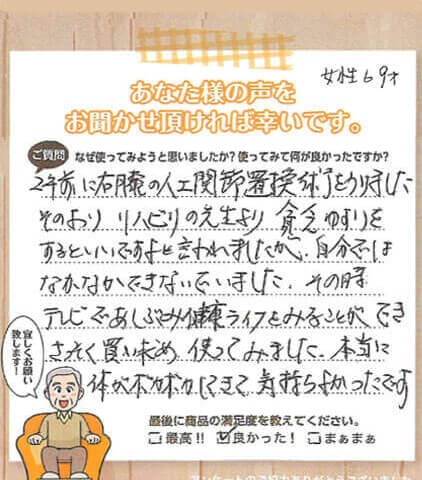 女性69才
あなた様の声を
お聞かせ頂ければ幸いです。
ご質問 なぜ使ってみようと思いましたか?使ってみて何が良かったですか?
2年前に右膝の人工関節置換術をうけました
そのおり リハビリの先生より 貧乏ゆすりを
するといいですよと言われましたが、自分では
なかなかできないでいました。その時
テレビであしぶみ健康ライフをみることができ
さっそく買い求め 使ってみました。本当に
体がポカポカしてきて 気持ちよかったです
宜しくお願い
致します!
最後に商品の満足度を教えてください。
□最高!! ☑良かった! □まぁまぁ
アンケートのご協力ありがとうございました